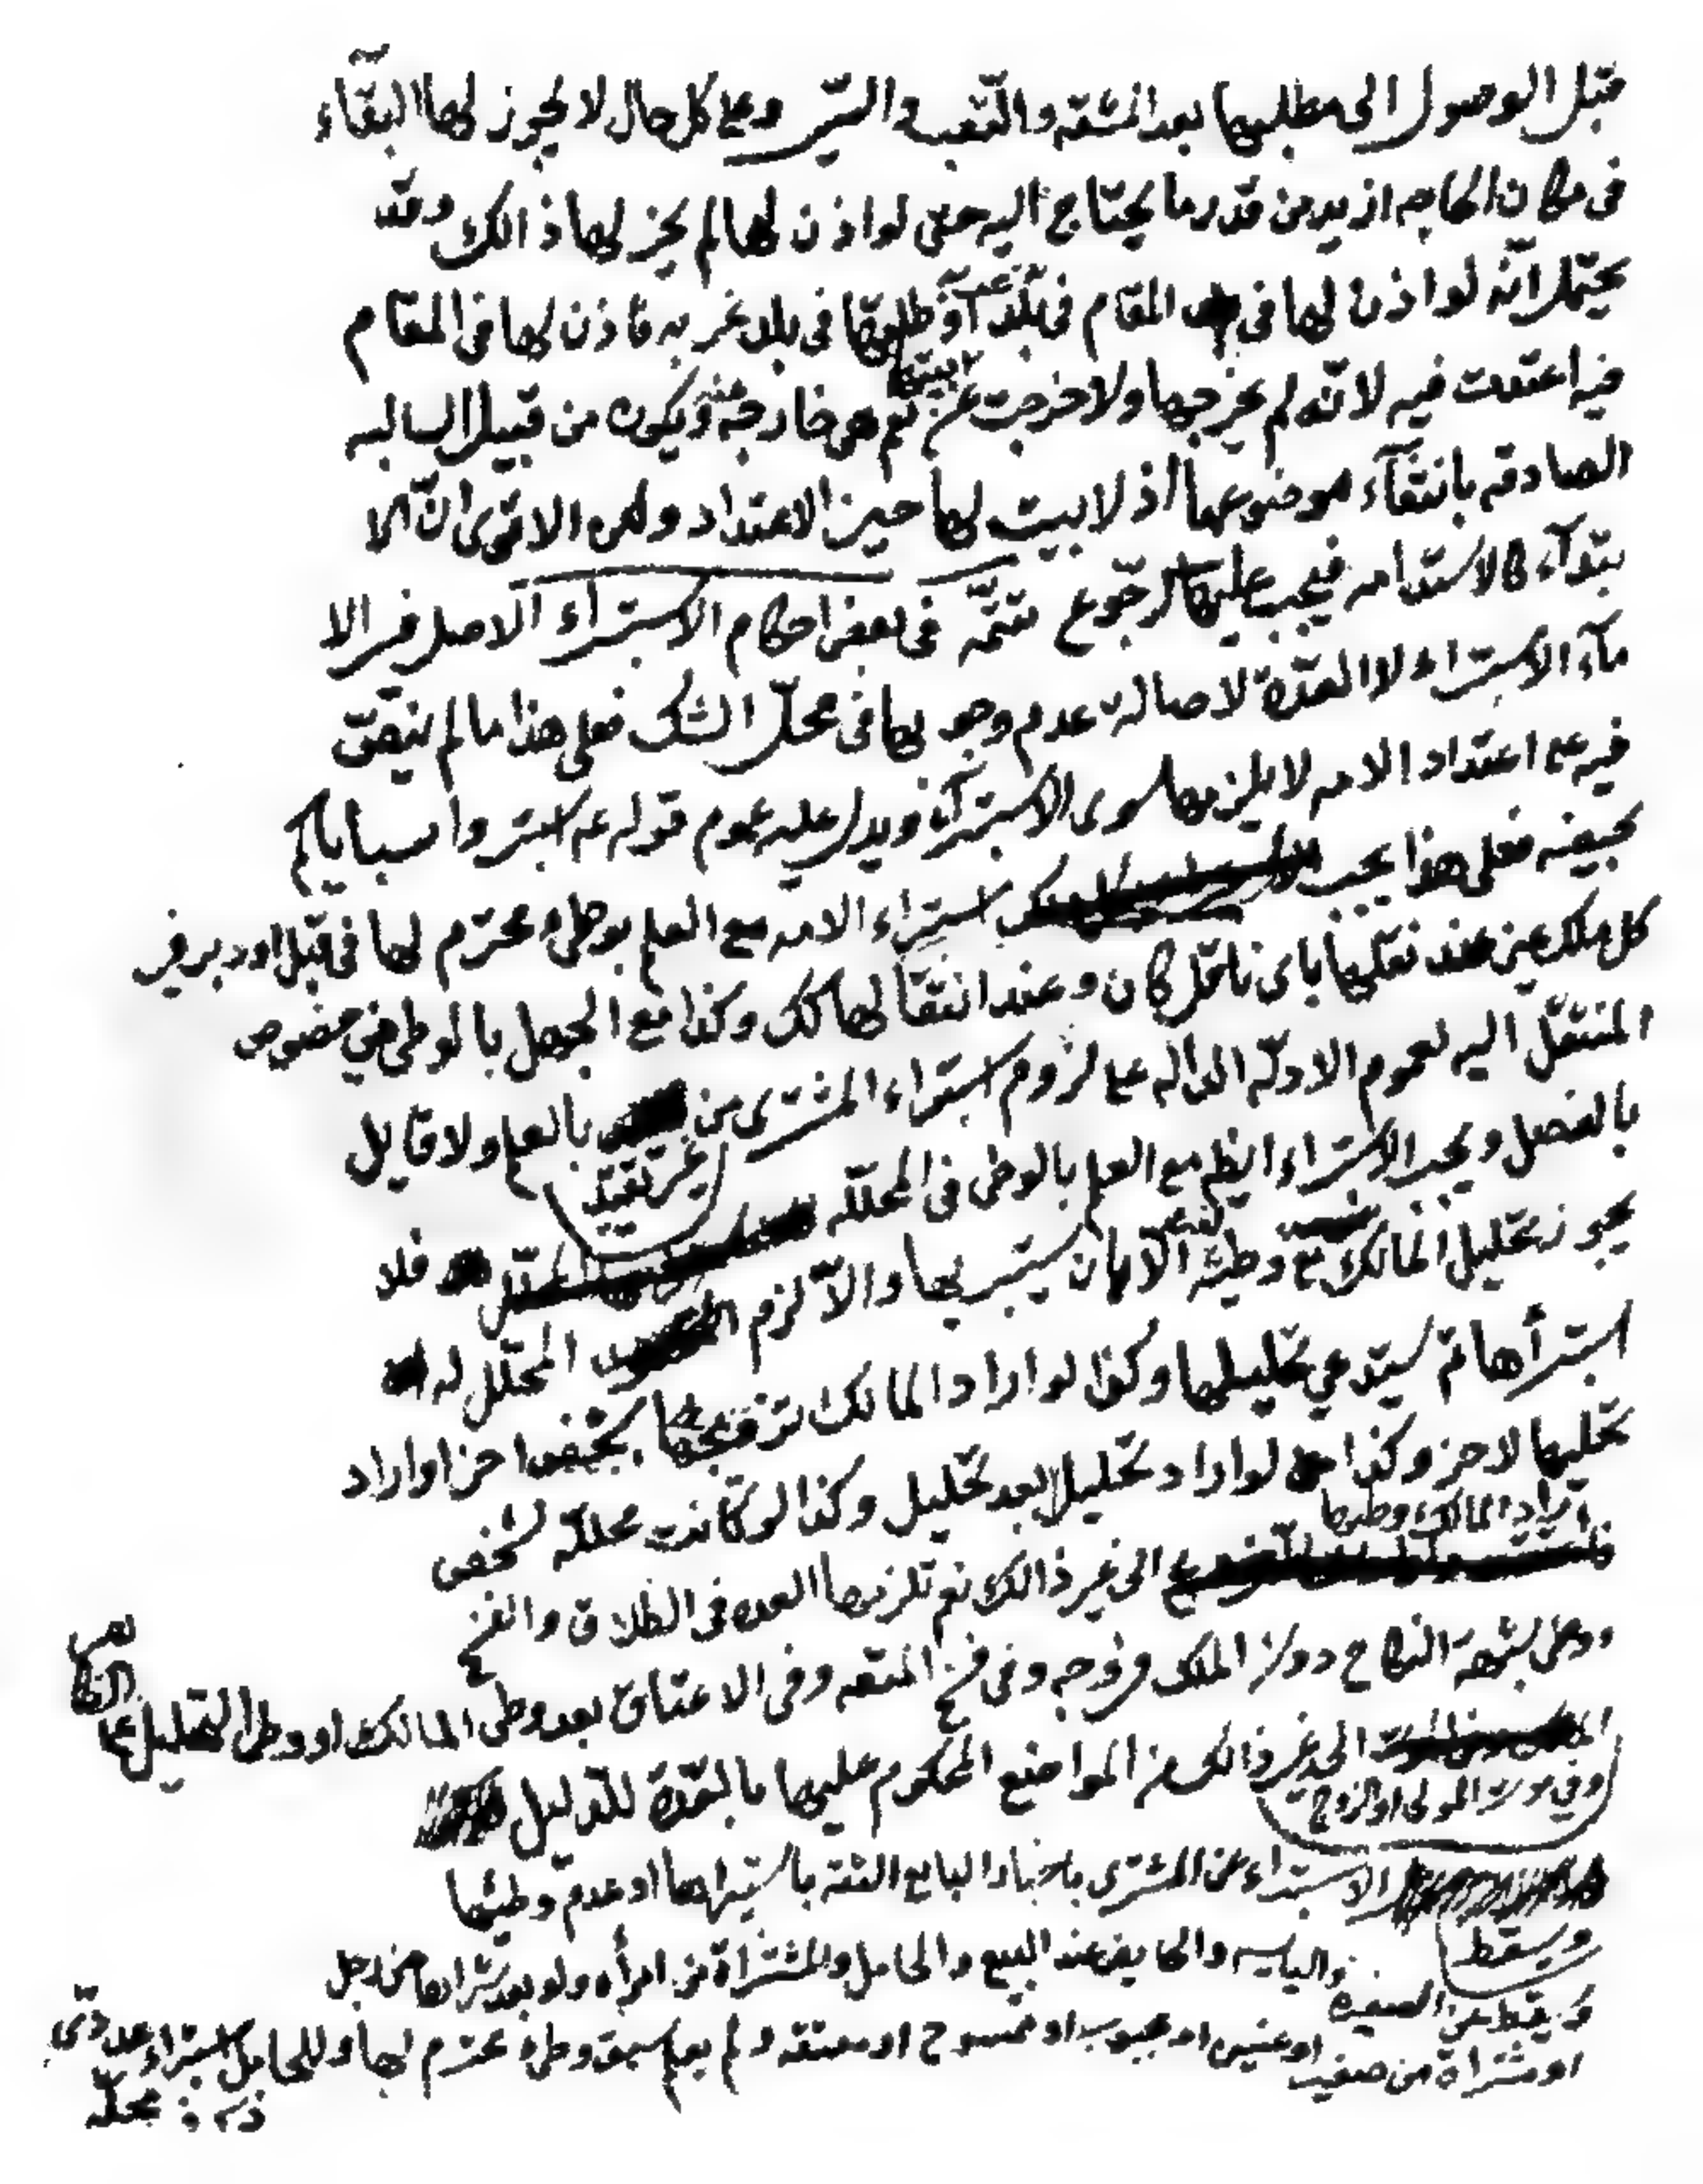 قبل الوصول الى مطلبها بعد المشقه والتعب والسّير وعلى كل حال لا يجوز لها البقآء
فى مكان الحاجه ازيد من قدر ما يحتاج اليه حتى لو اذن لها لم يجز لها ذالك وقد
يحتمل انّه لو اذن لها فى المقام فى بلد آخر او طلقها فى بلد غربه فاذن لها فى المقام
فيه اعتدت فيه لانّه لم يخرجها ولا خرجت عن بيتها نعم هى خارجة عنه ويكون من قبيل السالبه
الصادقه بانتفآء موضوعها اذ لا بيت لها حين الاعتداد ولكن الاقوى انّ الا
بتدآء كالاستدامه فيجب عليها الرجوع تتمّه فى بعض احكام الاستبراء الاصل فى الا
مآء الاستبراء لا العدّة لاصالة عدم وجوبها فى محلّ الشك فعلى هذا ما لم ينصّ
فيه على اعتداد الامه لا يلزمها سوى الاستبراء ويدل عليه عموم قوله عه استبروا سباياكم
بحيضه فعلى هذا يجب استبراء الامه مع العلم بوطىء محترم لها فى قبل او دبر فى
كل ملك يمين عند نقلها باى ناقل كان وعند انتقالها كك وكذا مع الجهل بالوطى فى خصوص
المنتقل اليه لعموم الادلّه الدالّه على لزوم استبراء المشترى من غير تقييد بالعلم ولا قايل
بالفصل ويجب الاستبراء ايضا مع العلم بالوطى فى المحلّله فلا
يجوز تحليل المالك مع وطيه لغيره الا بان يستبريها والّا لزم المحلّل له
استبرأها ثم يستدعي تحليلها وكذا لو اراد المالك تزويجها بشخص اخر او اراد
تحليها لاخر وكذا لو اراد تحليل بعد تحليل وكذا لو كانت محللّه لشخص
فاراد المالك وطيها الى غير ذالك نعم تلزمها العده فى الطلاق والفسخ
ووطى بشبهة النكاح دون الملك من زوجه وفى فسخ المتعه وفى الاعتاق بعد وطى المالك او وطى التحليل على
وفي موت المولى او الزوج الى غير ذالك من المواضع المحكوم عليها بالعدّة للدليل
ويسقط الاستبراء عن المشترى باخبار البايع الثقه باستبراها او عدم وطيها
ويسقط عن الصغيره واليايسه والحايض عند البيع والحامل والمشتراة من امرأه ولو بعد شراها من رجل
او مشتراة من صغير او عنين او مجبوب او ممسوح او معتقه ولم يعلم سبق وطىء محترم لها وللحامل استبراء
محلّه